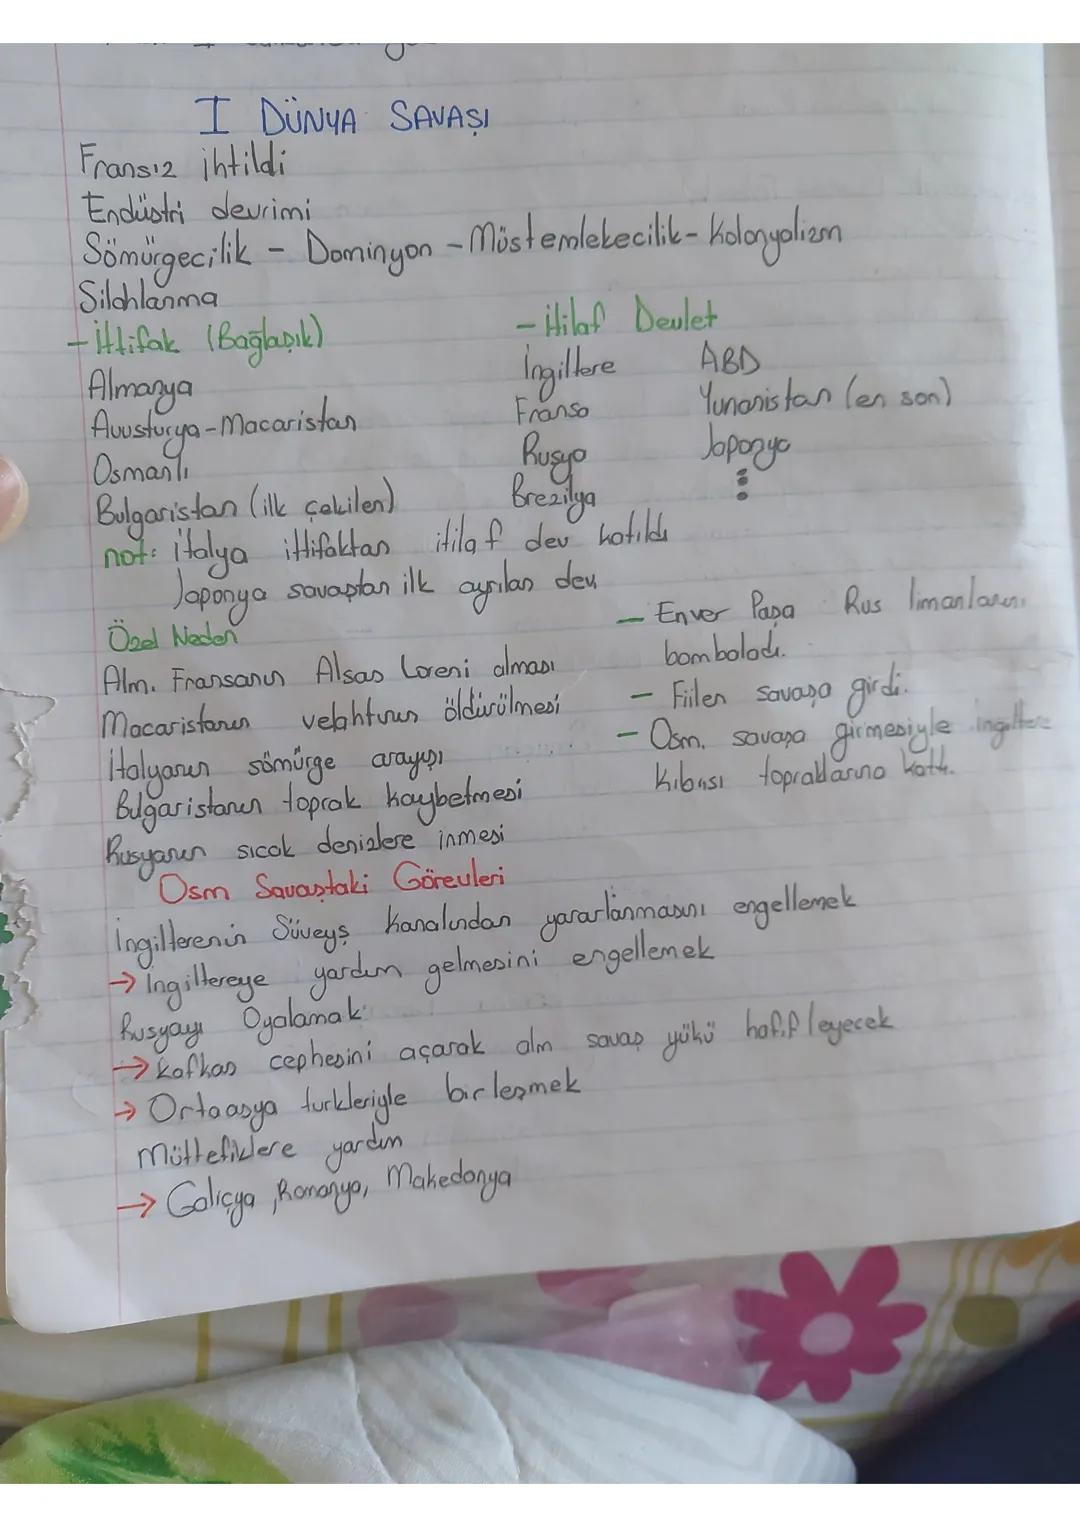 I DÜNYA SAVAŞI
Fransız ihtildi
Endüstri devrimi
Sömürgecilik - Dominyon - Müstemlekecilik - Kolonyalizm
Silahlanma
- İttifak (Bağlaşık)
Almanya
Avusturya - Macaristan
Osmanlı
Bulgaristan (ilk çekilen)
- İtilaf Devlet
İngiltere ABD
Fransa Yunanistan (en son)
Rusya Japonya
Brezilya
not: İtalya ittifaktan itilaf dev katıldı
Japonya savaştan ilk ayrılan dev
Özel Neden
Alm. Fransanın Alsas Loreni alması
Macaristanın velahtının öldürülmesi
İtalyanın sömürge arayışı
Bulgaristanın toprak kaybetmesi
Rusyanın sıcak denizlere inmesi
- Enver Paşa Rus limanlarını
bombaladı.
- Fiilen savaşa girdi.
- Osm. savaşa girmesiyle ingiltere
Kıbrısı topraklarına kattı.
Osm Savaştaki Görevleri
İngilterenin Süveyş kanalından yararlanmasını engellemek
→ İngiltereye yardım gelmesini engellemek
Rusyayı Oyalamak
→ Kafkas cephesini açarak alm savaş yükü hafifleyecek
→ Ortaasya turkleriyle birleşmek
Müttefiklere yardım
→ Galiçya, Romanya, Makedonya